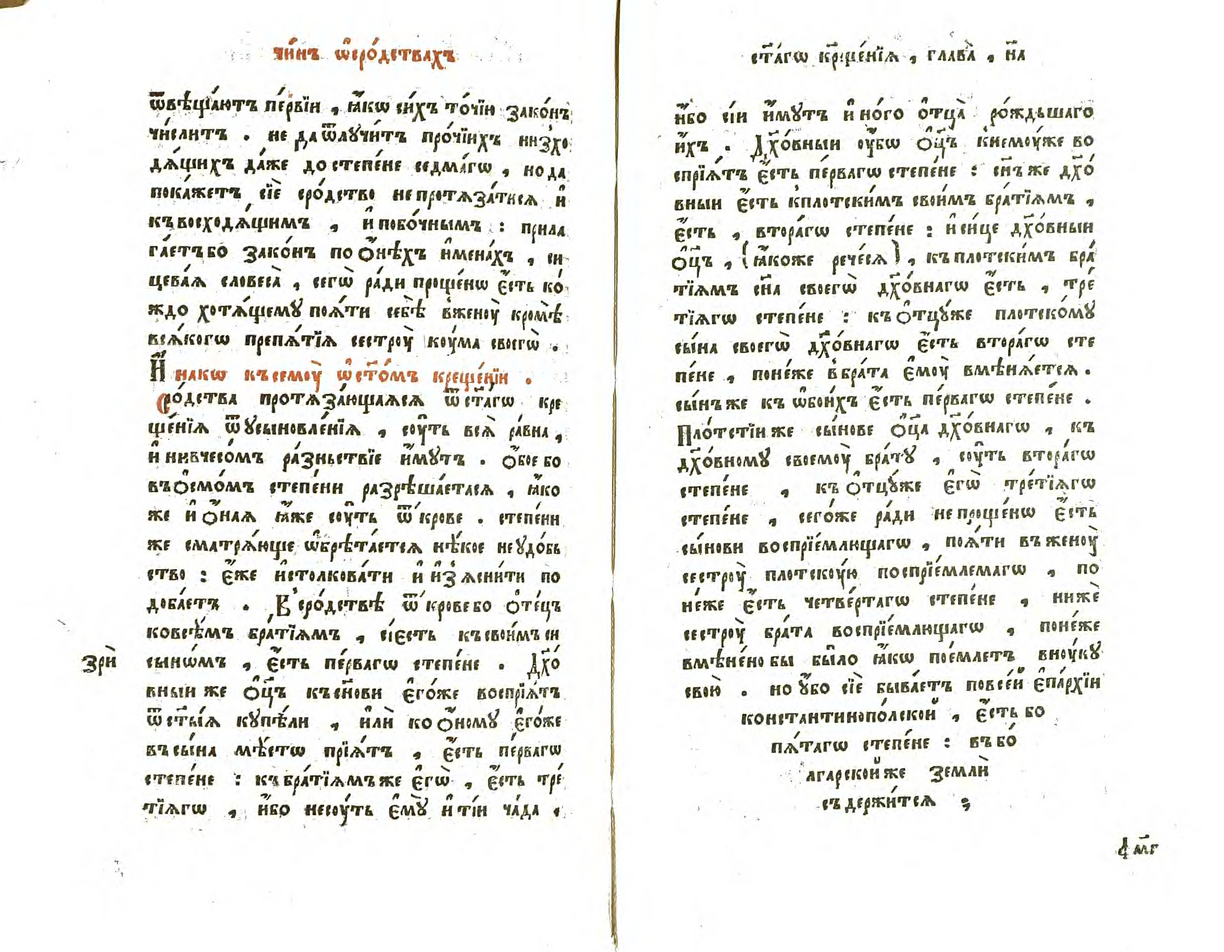 чи́нъ ѡ҆сро́дствахъ
ѿвѣща́ютъ пе́рвїи , ꙗ҆́кѡ си́хъ то́чїи зако́нъ
чи́слитъ . не да ѿлꙋчи́тъ про́чїихъ низхо
дѧ́щихъ да́же до степе́не седма́гѡ , но да
пока́жетъ сїѐ сро́дство не протѧза́тисѧ и҆
къ восходѧ́щимъ , и҆ побо́чнымъ : прила
га́етъ бо зако́нъ по ѻ҆́нѣхъ и҆менахъ , си
цева́ѧ словеса̀ , сегѡ̀ ра́ди проще́нѡ є҆́сть ко́
ждо хотѧ́щемꙋ поѧ́ти себѣ̀ в женоу̀ кромѣ̀
всѧ́когѡ препѧ́тїѧ сестроу̀ коу́ма своегѡ̀ .
И҆́накѡ къ семоу̀ ѡ҆ ст҃о́мъ креще́нїи .
Сро́дства протѧза́ющаѧсѧ ѿ ст҃а́гѡ кре
ще́нїѧ ѿ ᲂусыновле́нїѧ , соу́ть всѧ̀ ра́вна ,
и҆ ни в чесо́мъ ра́зньствїе и҆́мꙋтъ . ѻ҆́бое бо
въ ѻ҆смо́мъ степени разрѣша́етасѧ , ꙗ҆́ко
же и҆ ѻ҆́наѧ ꙗ҆́же соу́ть ѿ крове . степени
же сматрѧ́юще ѡ҆брѣта́етсѧ нѣ́кое неудо́бь
ство : є҆́же и҆столкова́ти и҆ и҆з̾ѧсни́ти по
доба́етъ . В̾ сро́дствѣ ѿ крове бо ѻ҆те́цъ
ко всѣ́мъ бра́тїѧмъ , сїе́сть къ свои́мъ си
сыно́мъ , є҆́сть пе́рвагѡ степе́не . Дх҃о́
вныи же ѻ҆ц҃ъ къ сн҃ови є҆го́же воспрїѧ́тъ
ѿ ст҃ы́ѧ кꙋпѣ́ли , и҆лѝ ко ѻ҆́номꙋ є҆го́же
въ сы́на мѣ́стѡ прїѧ́тъ , є҆́сть пе́рвагѡ
степе́не : къ бра́тїѧмъ же є҆гѡ̀ , є҆́сть тре́
тїѧгѡ , и҆́бо не соу́ть є҆мꙋ̀ и҆ тїи ча́да .
Зрѝ
ст҃а́гѡ кр҃ще́нїѧ , глава̀ , н҃а
и҆́бо сі́и и҆́мꙋтъ и҆но́го ѻ҆тца̀ ро́ждьшаго
и҆́хъ . Дх҃о́вныи оу҆́бѡ ѻ҆ц҃ъ к немоу́же во
спрїѧ́тъ є҆́сть пе́рвагѡ степе́не : сн҃ъ же дх҃о́
вныи є҆́сть к пло́тскимъ свои́мъ бра́тїѧмъ ,
є҆́сть , вторагѡ степе́не : и҆ си́це дх҃о́вныи
ѻ҆ц҃ъ , (ꙗ҆́коже рече́сѧ) , къ пло́тскимъ бра́
тїѧмъ сн҃а своегѡ̀ дх҃о́внагѡ є҆́сть , тре́
тїѧгѡ степе́не : къ ѻ҆тцꙋ́же пло́тскомꙋ
сы́на своегѡ̀ дх҃о́внагѡ є҆́сть втора́гѡ сте
пе́не , поне́же в̾ бра́та є҆моу̀ вмѣнѧ́етсѧ .
сы́нъ же къ ѡ҆бои́хъ є҆́сть пе́рвагѡ степе́не .
Пло́тстїи же сы́нове ѻ҆ц҃а дх҃о́внагѡ , къ
дх҃о́вномꙋ своемоу̀ бра́тꙋ , соу́ть втора́гѡ
степе́не , къ ѻ҆тцꙋ́же є҆гѡ̀ тре́тїѧгѡ
степе́не , сего́же ра́ди не проще́нѡ є҆́сть
сы́нови воспрїе́млющагѡ , поѧ́ти въ женоу̀
сестроу̀ пло́тскоую воспрїе́млемагѡ , по
не́же є҆́сть четве́ртагѡ степе́не , нижѐ
сестроу̀ бра́та воспрїе́млющагѡ , поне́же
вмѣне́но бы бы́ло ꙗ҆́кѡ пое́млетъ вноу́кꙋ
свою̀ . но ᲂу҆́бо сїѐ быва́етъ по все́й є҆па́рхїи
константинопо́лской , є҆́сть бо
пѧ́тагѡ степе́не : въ бо́
агарской же землѝ
съдержи́тсѧ ;
м҃г